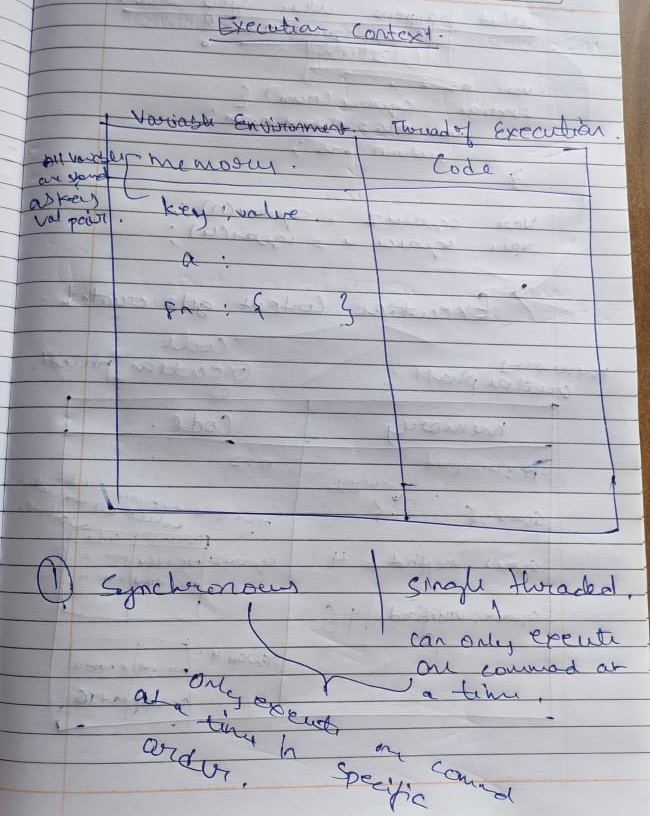 Execution Context.
Variable Environment. Thread of Execution.
All variables are stored as key val pair.
memory. Code.
key : value.
a :
fn : { }
① Synchronous | single thraded.
can only execute
one commad at
a time.
Only execute one commad
at a time in specific
order.